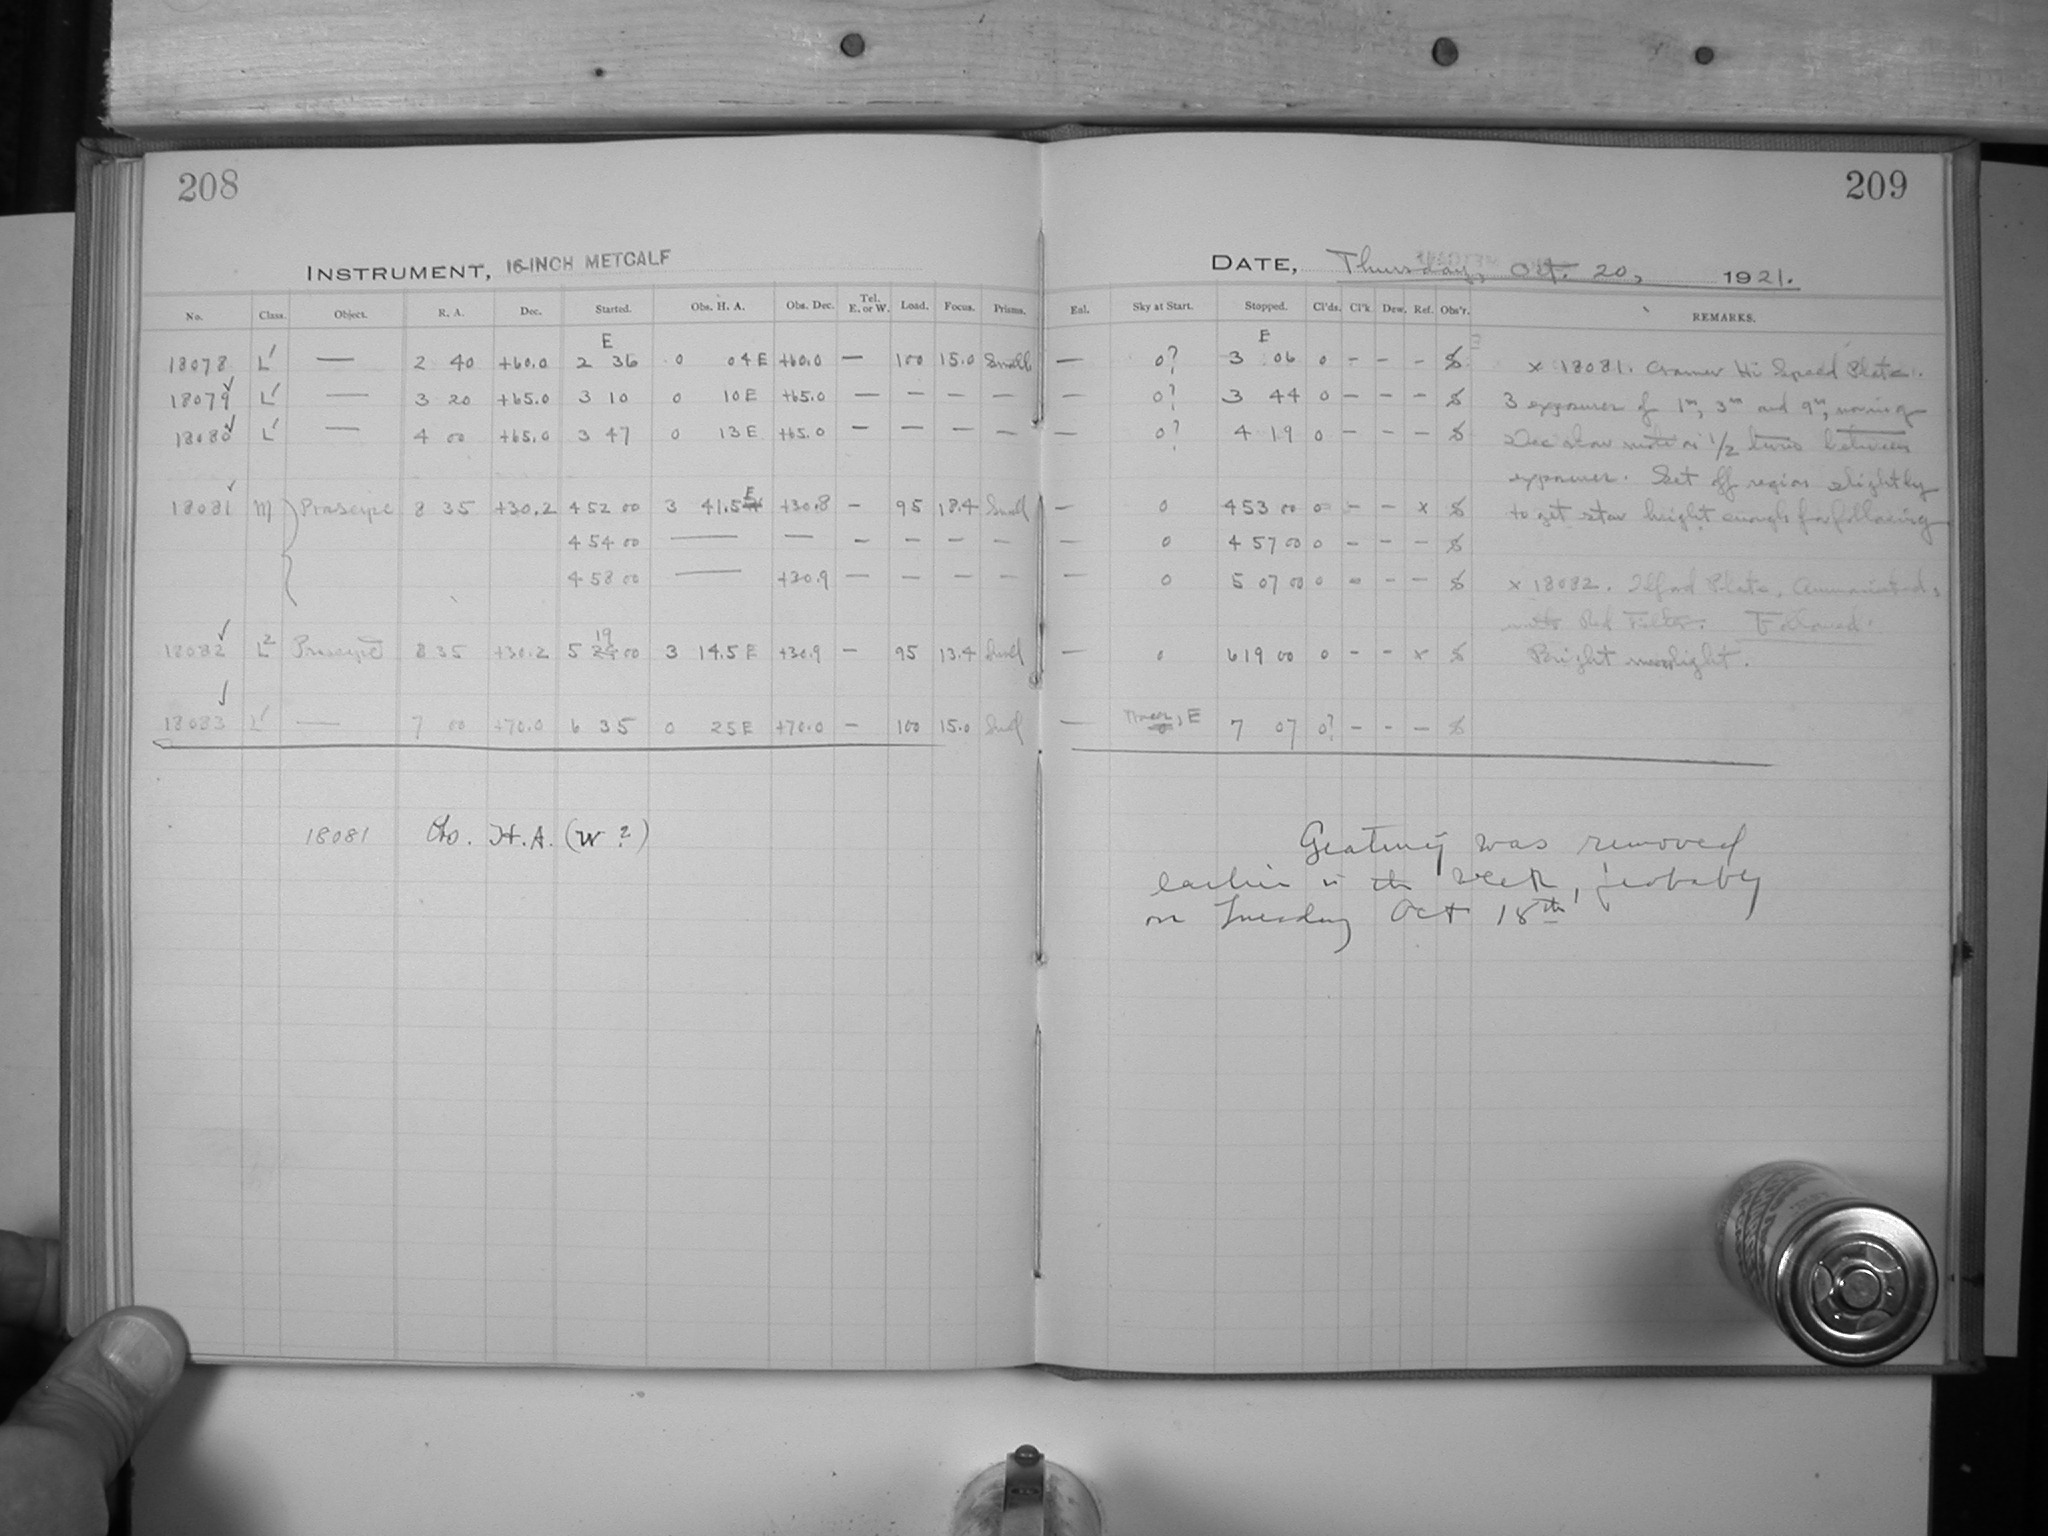 208
INSTRUMENT, 16-INCH METCALF
No. Class. Object. R. A. Dec. Started. Obs. H. A. Obs. Dec. Tel. E. or W. Load. Focus. Prisms.
E
18078 L' — 2 40 +60.0 2 36 0 04 E +60.0 — 100 15.0 Small
18079 L' — 3 20 +65.0 3 10 0 10 E +65.0 — — — —
18080 L' — 4 00 +65.0 3 47 0 13 E +65.0 — — — —
18081 M Praesepe 8 35 +30.2 4 52 00 3 41.5 E +30.8 — 95 18.4 Small
4 54 00 — — — — — —
4 58 00 — +30.9 — — — —
18082 L2 Praesepe 8 35 +30.2 5 19 00 3 14.5 E +30.9 — 95 13.4 Small
18083 L' — 7 00 +70.0 6 35 0 25 E +70.0 — 100 15.0 Small
18081 Obs. H.A. (W ?)
209
DATE, Thursday, Oct. 20, 1921.
Eal. Sky at Start. Stopped. Cl'ds. Cl'k. Dew. Ref. Obs'r. REMARKS.
E
— 0? 3 06 0 – – – S x 18081. Cramer Hi Speed Plate.
— 0? 3 44 0 – – – S 3 exposures of 1m, 3m and 9m, moving
— 0? 4 19 0 – – – S Dec slow motion 1/2 turn between
exposures. Set off region slightly
— 0 4 53 00 0 – – x S to get star bright enough for following
— 0 4 57 00 0 – – – S
— 0 5 07 00 0 – – – S x 18082. Ilford Plate, Ammoniated,
with Red Filter. Followed.
— 0 6 19 00 0 – – x S Bright moonlight.
— Moon, E 0 7 07 0? – – – S
Grating was removed
earlier in the week, probably
on Tuesday Oct 18th